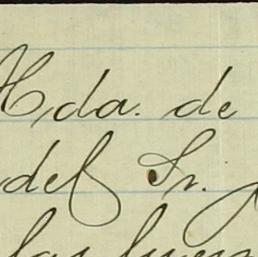 Hda. de
del Sr.
las